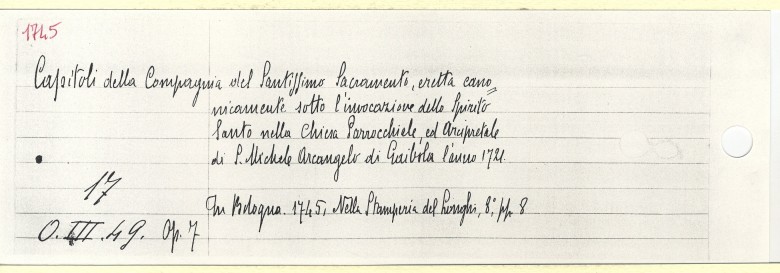 1745
Capitoli della Compagnia del Santissimo Sacramento, eretta cano=
nicamente sotto l'invocazione dello Spirito
Santo nella Chiesa Parrocchiale, ed Arcipretale
di S. Michele Arcangelo di Gaibola l'anno 1721.
17
In Bologna. 1745, Nella Stamperia del Longhi, 8°, pp. 8
O.III.49. Op. 7